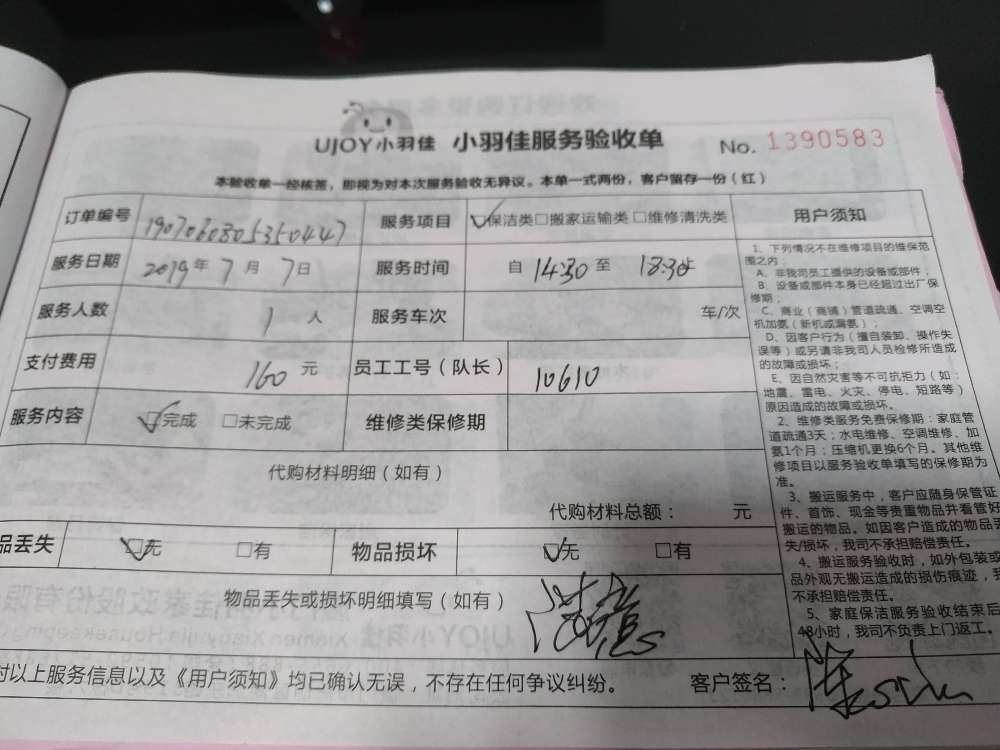 UJOY小羽佳 小羽佳服务验收单 No. 1390583
本验收单一经核签，即视为对本次服务验收无异议。本单一式两份，客户留存一份（红）
订单编号 1907060805350447 服务项目 ☑保洁类□搬家运输类□维修清洗类
服务日期 2019年7月7日 服务时间 自 14:30 至 18:30
服务人数 1人 服务车次 车/次
支付费用 160元 员工工号（队长） 10610
服务内容 ☑完成 □未完成 维修类保修期
代购材料明细（如有）
代购材料总额： 元
品丢失 ☑无 □有 物品损坏 ☑无 □有
物品丢失或损坏明细填写（如有）
对以上服务信息以及《用户须知》均已确认无误，不存在任何争议纠纷。 客户签名：
用户须知
1、下列情况不在维修项目的维保范
围之内：
A、非我司员工提供的设备或部件；
B、设备或部件本身已经超过出厂保
修期；
C、商业（商铺）管道疏通、空调空
机加氨（新机或漏氨）；
D、因客户行为（擅自装卸、操作失
误等）或另请非我司人员检修所造成
的故障或损坏；
E、因自然灾害等不可抗拒力（如：
地震、雷电、火灾、停电、短路等）
原因造成的故障或损坏。
2、维修类服务免费保修期：家庭管
道疏通3天；水电维修、空调维修、加
氨1个月；压缩机更换6个月。其他维
修项目以服务验收单填写的保修期为
准。
3、搬运服务中，客户应随身保管证
件、首饰、现金等贵重物品并看管好
搬运的物品。如因客户造成的物品丢
失/损坏，我司不承担赔偿责任。
4、搬运服务验收时，如外包装或
品外观无搬运造成的损伤痕迹，我
不承担赔偿责任。
5、家庭保洁服务验收结束后
48小时，我司不负责上门返工。